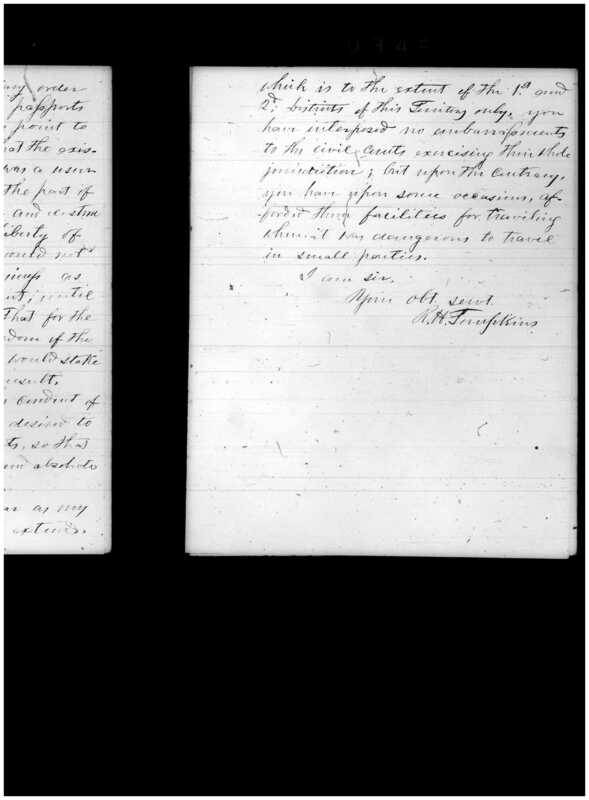 order
passports
point to
hat the exis-
was a usur
the part of
and restra
liberty of
would not
as
until
That for the
if the
would stake
result.
conduct of
desired to
ts, so that
absolute
as my
extends.
which is to the extent of the 1st and
2d Districts of this Territory only, you
have interposed no embarrassments
to the civil Courts exercising their whole
jurisdiction; but upon the Contrary,
you have upon some occasions, af-
forded them facilities for traveling
when it was dangerous to travel
in small parties.
I am sir,
Your obt. servt.
R. H. Tompkins